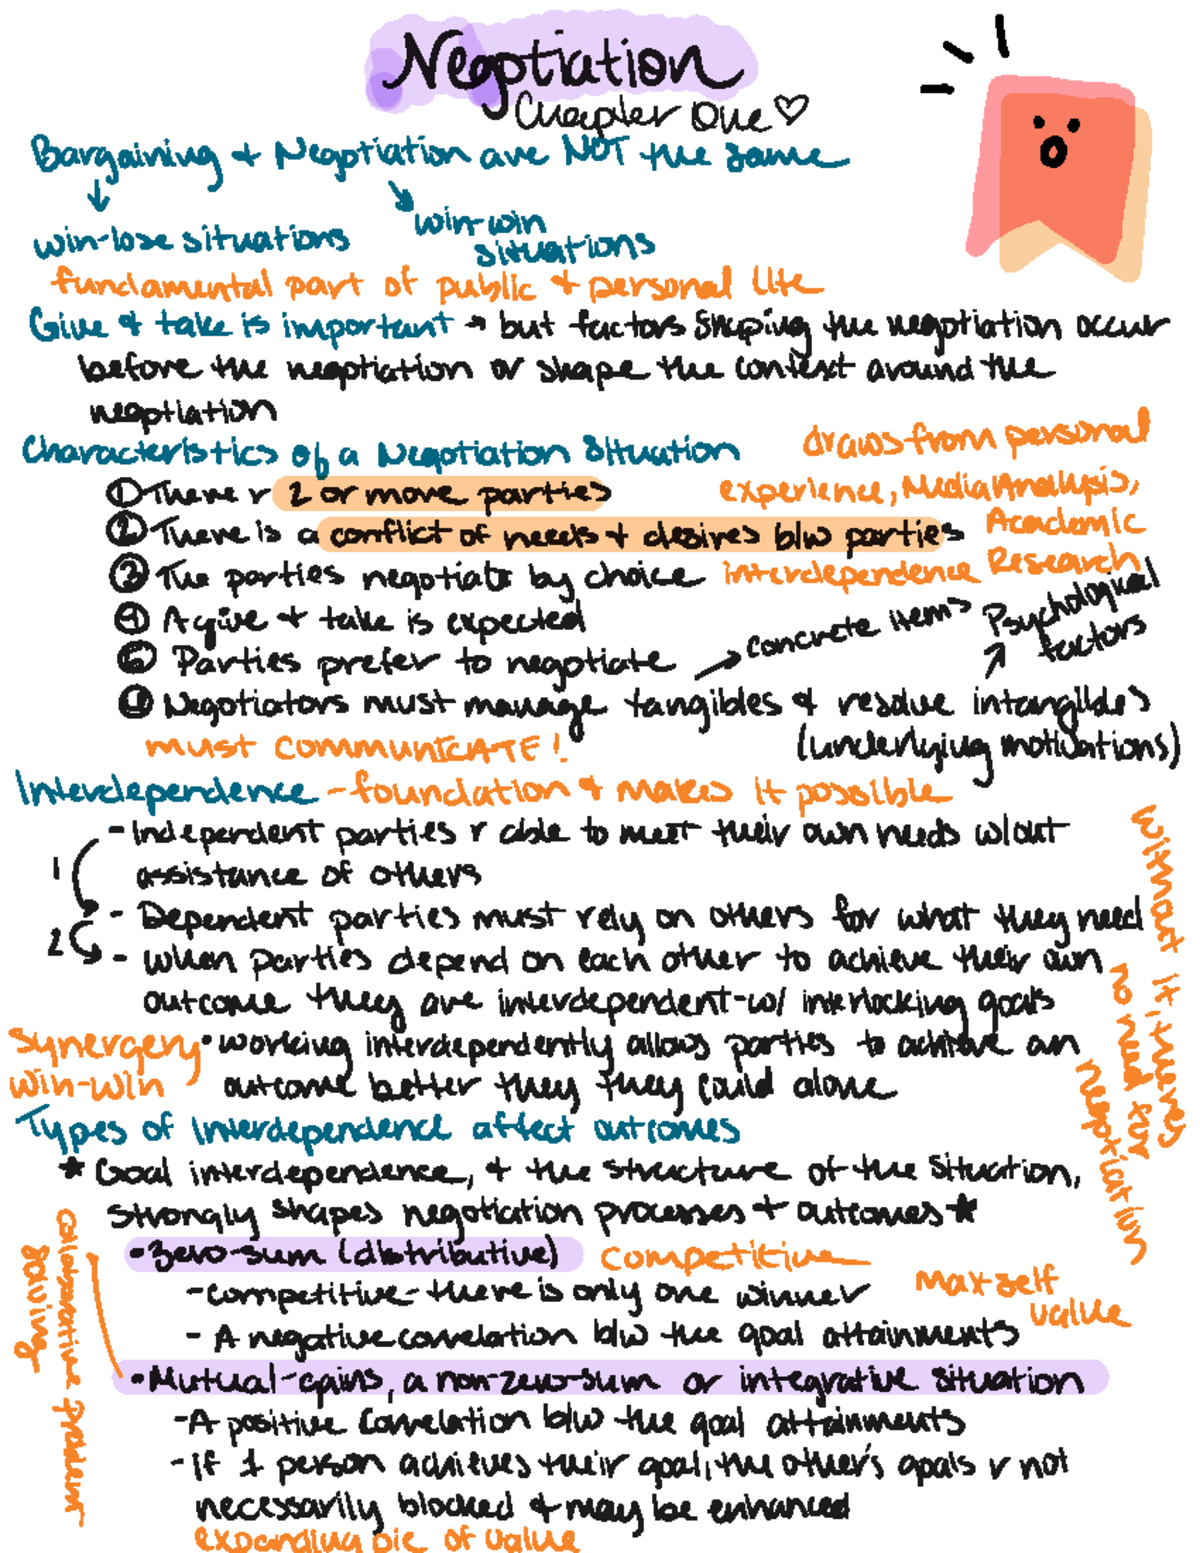 Negotiation
Chapter One ♡
Bargaining + Negotiation are NOT the same
win-lose situations
win-win
situations
fundamental part of public + personal life
Give + take is important → but factors shaping the negotiation occur
before the negotiation or shape the context around the
negotiation
Characteristics of a Negotiation Situation
draws from personal
experience, Media Analysis,
Academic
Research
① There r 2 or more parties
② There is a conflict of needs + desires b/w parties
③ The parties negotiate by choice interdependence
④ A give + take is expected
⑤ Parties prefer to negotiate
→ concrete items
Psychological
factors
⑥ Negotiators must manage tangibles + resolve intangibles
(underlying motivations)
must COMMUNICATE!
Interdependence - foundation + makes it possible
- Independent parties r able to meet their own needs w/out
assistance of others
1
- Dependent parties must rely on others for what they need
2
- when parties depend on each other to achieve their own
outcome they are interdependent - w/ interlocking goals
without it, theres
no need for
negotiation
Synergery
win-win
• working interdependently allows parties to achieve an
outcome better they they could alone
Types of Interdependence affect outcomes
* Goal interdependence, + the structure of the situation,
strongly shapes negotiation processes + outcomes *
• Zero-sum (distributive) competitive
- competitive - there is only one winner
max self
value
- A negative correlation b/w the goal attainments
• Mutual-gains, a non-zero-sum or integrative situation
- A positive correlation b/w the goal attainments
- If 1 person achieves their goal, the other's goals r not
necessarily blocked + may be enhanced
expanding pie of value
solving